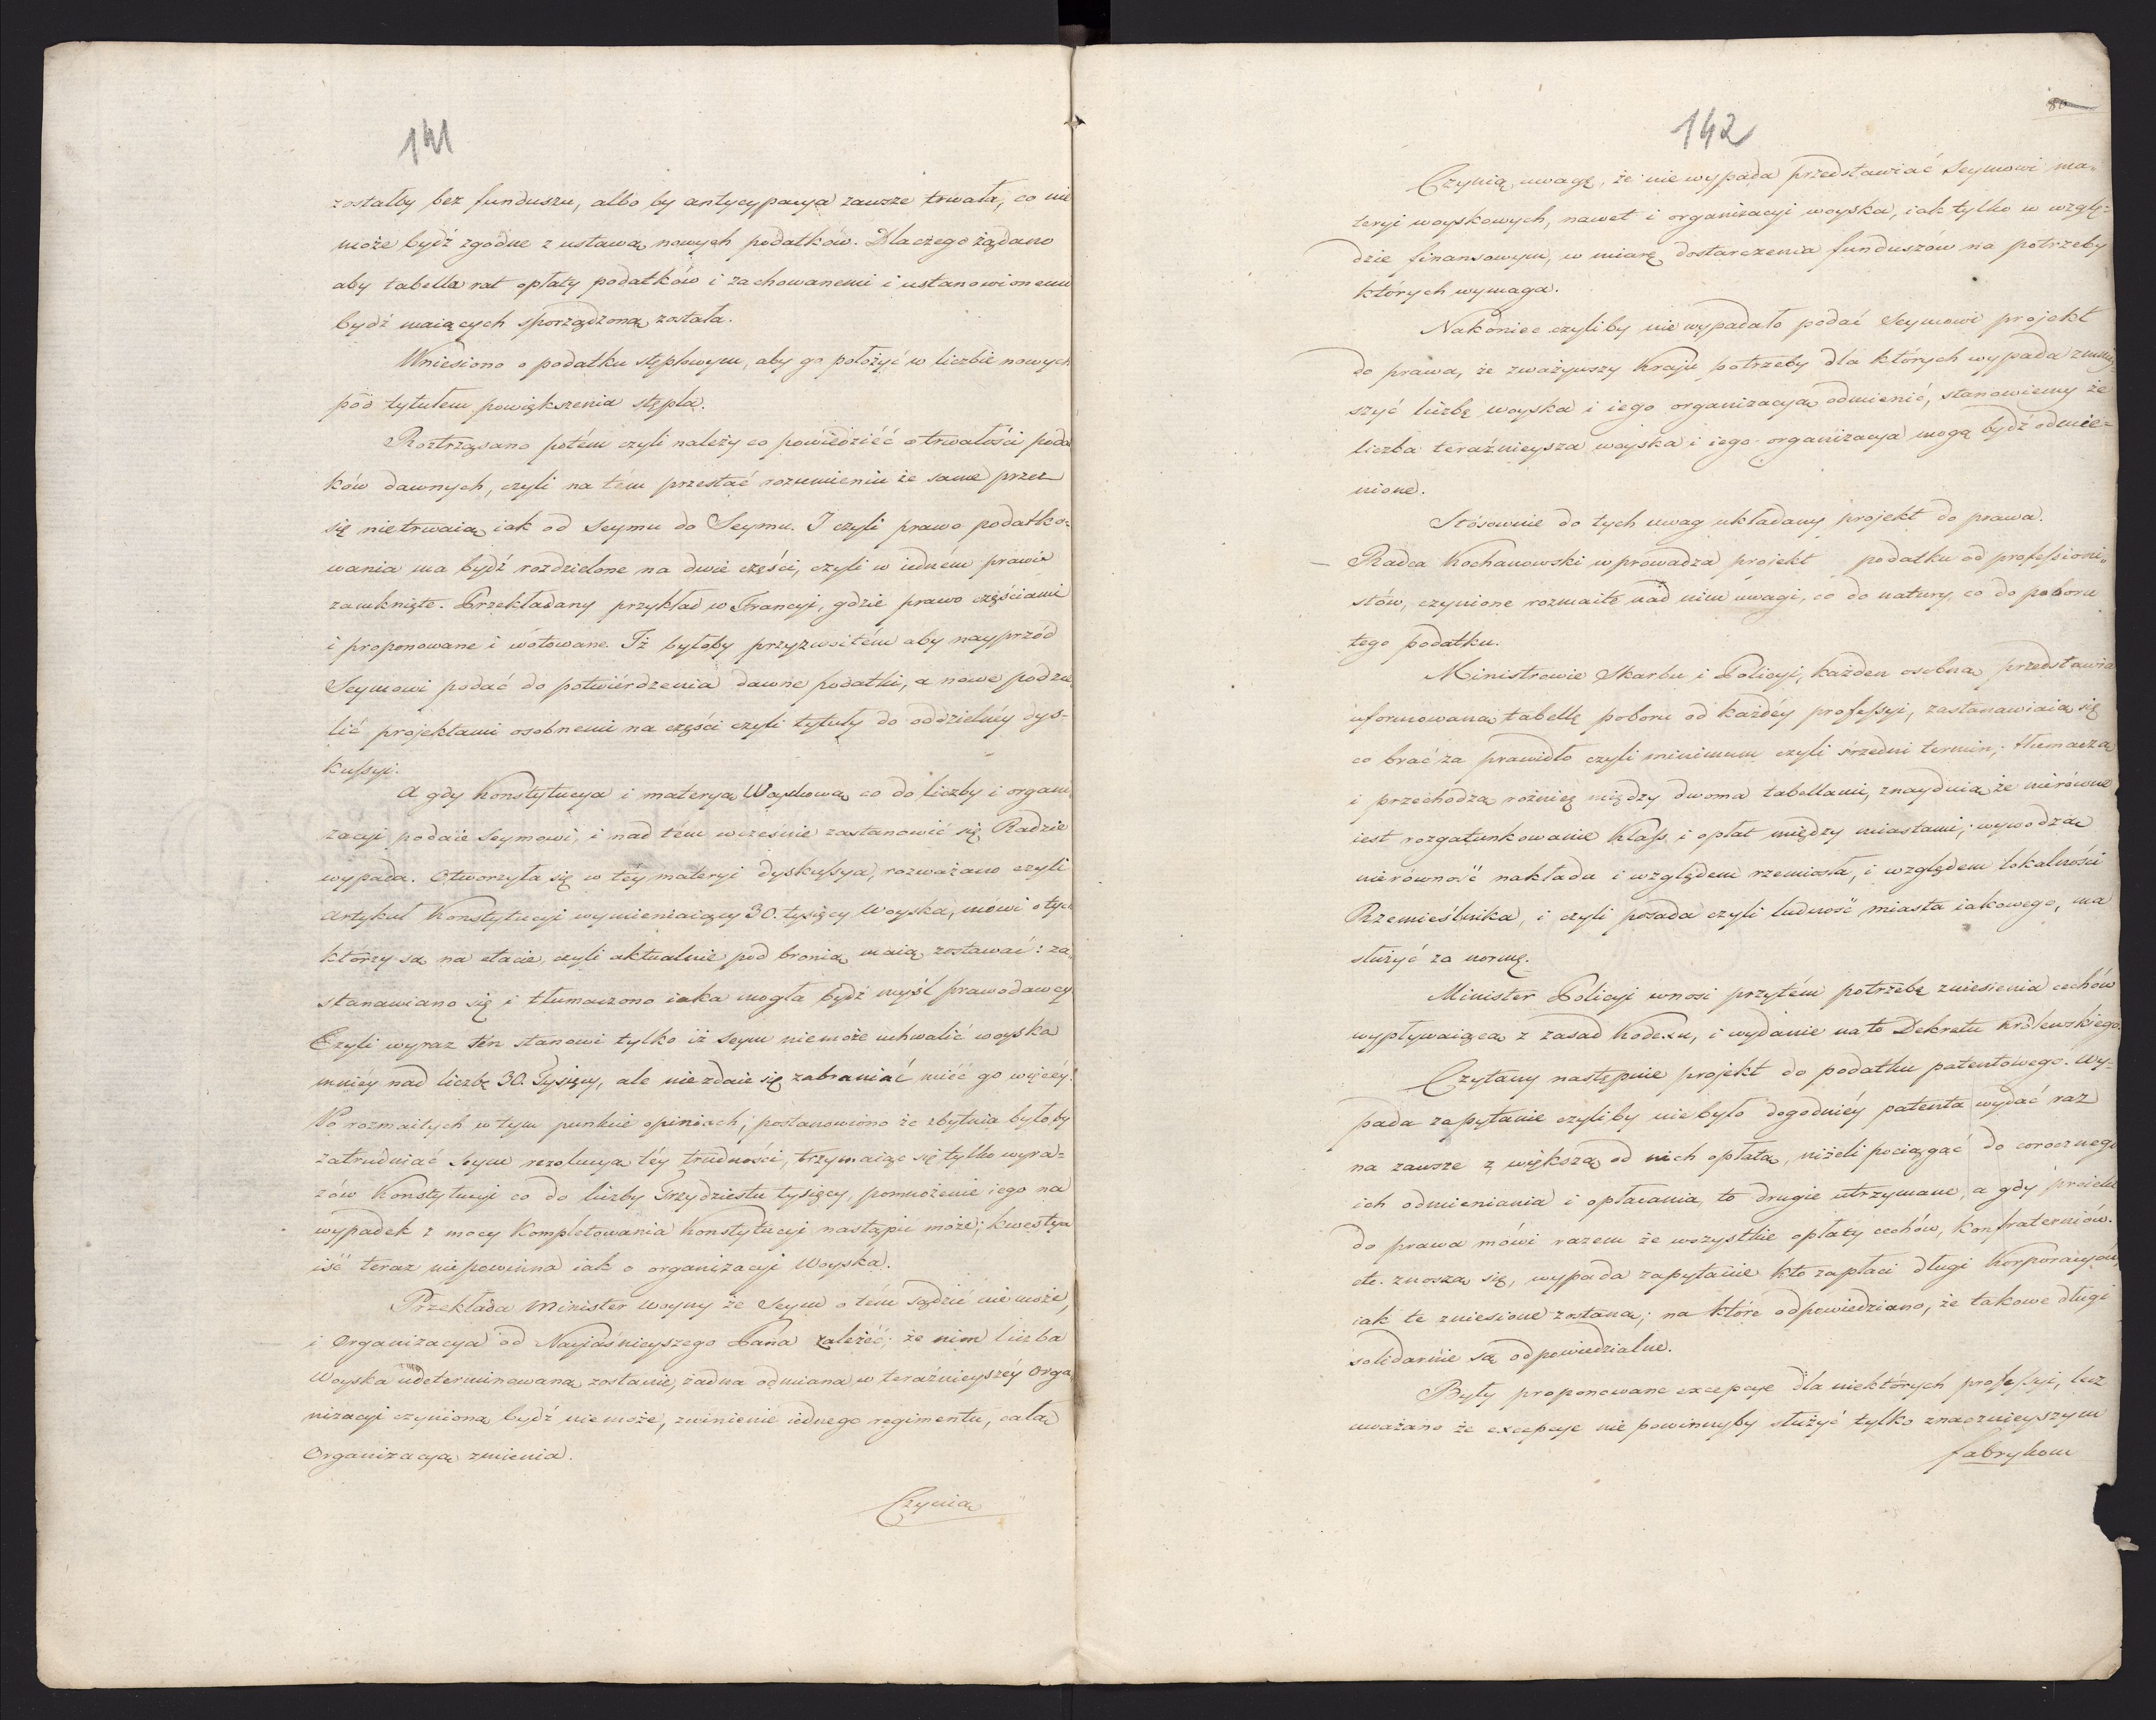 141
zostałby bez funduszu, albo by antycypacya zawsze trwała, co nie
może bydź zgodne z ustawą nowych podatków. Dlaczego żądano
aby tabella rat opłaty podatków i zachowanemi i ustanowionemi
bydź maiących sporządzoną została.
Wniesiono o podatku stęplowym, aby go położyć w liczbie nowych
pod tytułem powiększenia stępla.
Roztrząsano potém czyli należy co powiedziéć o trwałości podat
ków dawnych, czyli na tém przestać rozumieniu że same przez
się nietrwaią iak od Seymu do Seymu. I czyli prawo podatko-
wania ma bydź rozdzielone na dwie części, czyli w iedném prawie
zamknięte. Przekładany przykład w Francyi, gdzie prawo częściami
i proponowane i wotowane. Iż byłoby przyzwoitém aby nayprzód
Seymowi podać do potwiérdzenia dawne podatki, a nowe podzie
lić projektami osobnemi na części czyli tytuły do oddzielnéy dys-
kussyi.
A gdy Konstytucya i materyą Woyskową co do liczby i organi
zacyi podaie Seymowi, i nad tém wcześnie zastanowić się Radzie
wypada. Otworzyła się w téy materyi dyskussya, rozważano czyli
Artykuł Konstytucyi wymieniaiący 30. tysięcy Woyska, mówi o tych
którzy są na etacie, czyli aktualnie pod bronią maią zostawać: za
stanawiano się i tłumaczono iaka mogła bydź myśl prawodawcy
Czyli wyraz ten stanowi tylko iż Seym niemoże uchwalić woyska
mniéy nad liczbę 30. Tysięcy, ale nie zdaie się zabraniać miéć go więcéy.
Po rozmaitych w tym punkcie opiniach, postanowiono że zbytnia byłoby
zatrudniać Seym rezolucyą téy trudności, trzymaiąc się tylko wyra-
zów Konstytucyi co do liczby Trzydziestu tysięcy, pomnożenie iego na
wypadek z mocy Kompletowania Konstytucyi nastąpić może; kwestya
iść teraz niepowinna iak o organizacyi Woyska.
Przekłada Minister Woyny że Seym o tém sądzić nie może,
i Organizacya od Nayjaśnieyszego Pana zależéć; że nim liczba
Woyska udeterminowaną zostanie, żadna odmiana w teraźnieyszéy Orga
nizacyi czynioną bydź niemoże, zwinienie iednego regimentu, całą
Organizacyą zmienia.
Czynią
142
80
Czynią uwagę, że nie wypada przedstawiać Seymowi ma-
teryi woyskowych, nawet i organizacyi woyska, iak tylko w wzglę-
dzie finansowym, w miarę dostarczenia funduszów na potrzeby
których wymaga.
Nakoniec czyliby nie wypadało podać Seymowi projekt
do prawa, że zważywszy Kraju potrzeby dla których wypada zmniey
szyć liczbę woyska i iego organizacyą odmienić, stanowiemy że
liczba teraźnieysza woyska i iego organizacya mogą bydź odmie-
nione.
Stósownie do tych uwag układany projekt do prawa.
– Radca Kochanowski wprowadza projekt podatku od professioni-
stów, czynione rozmaite nad nim uwagi, co do natury, co do poboru
tego podatku.
Ministrowie Skarbu i Policyi, każden osobną przedstawia
uformowaną tabellę poboru od każdéy professyi, zastanawiaią się
co brać za prawidło czyli minimum czyli śrzedni termin; tłumaczą
i przechodzą różnicę między dwoma tabellami, znayduią że nierówne
iest rozgatunkowanie Klass i opłat między miastami, wywodzą
nierówność nakładu i względem rzemiosła, i względem lokalności
Rzemieślnika, i czyli posada czyli ludność miasta iakowego, ma
służyć za normę.
Minister Policyi wnosi przytém potrzebę zniesienia cechów
wypływaiącą z zasad Kodexu, i wydanie na to Dekretu Królewskiego.
Czytany następnie projekt do podatku patentowego. Wy-
pada zapytanie czyliby nie było dogodniéy patenta wydać raz
na zawsze z większą od nich opłatą, niżeli pociągać do corocznego
ich odmieniania i opłacania, to drugie utrzymane, a gdy projekt
do prawa mówi razem że wszystkie opłaty cechów, konfraterniów
etc. znoszą się, wypada zapytanie kto zapłaci długi Korporacyów,
iak te zniesione zostaną; na które odpowiedziano, że takowe długi
solidarnie są odpowiedzialne.
Były proponowane excepcye dla niektórych professyi, lecz
uważano że excepcye nie powinnyby służyć tylko znacznieyszym
fabrykom